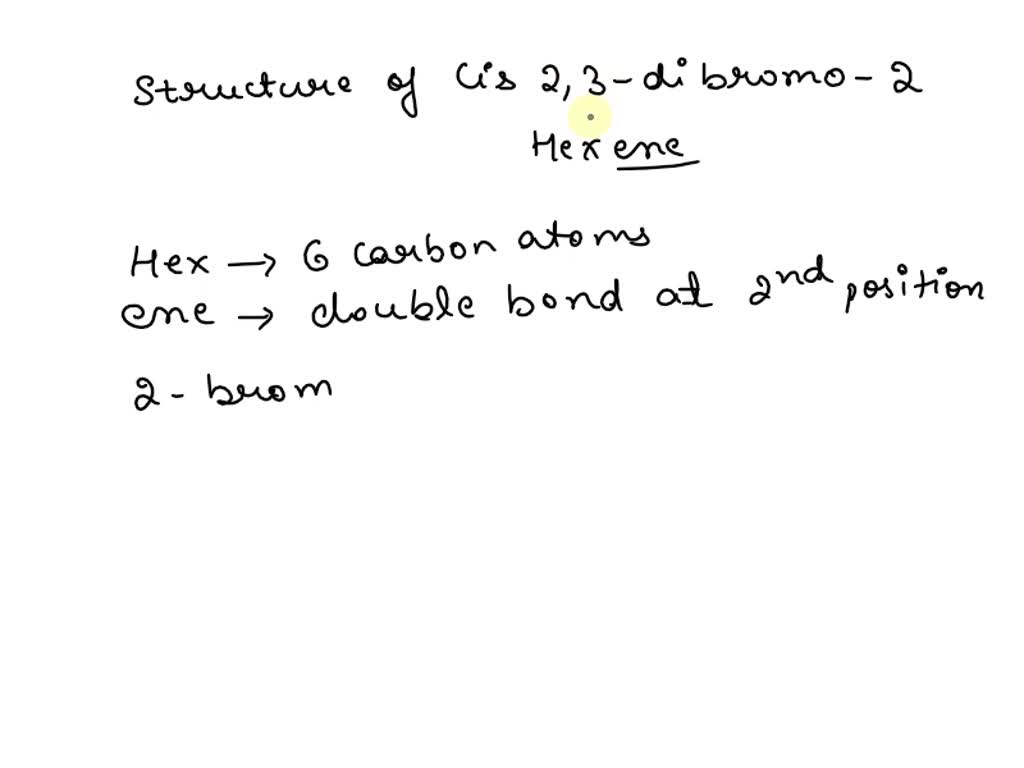 Structure of Cis 2,3-dibromo-2
Hexene
Hex → 6 carbon atoms
ene → double bond at 2nd position
2-brom